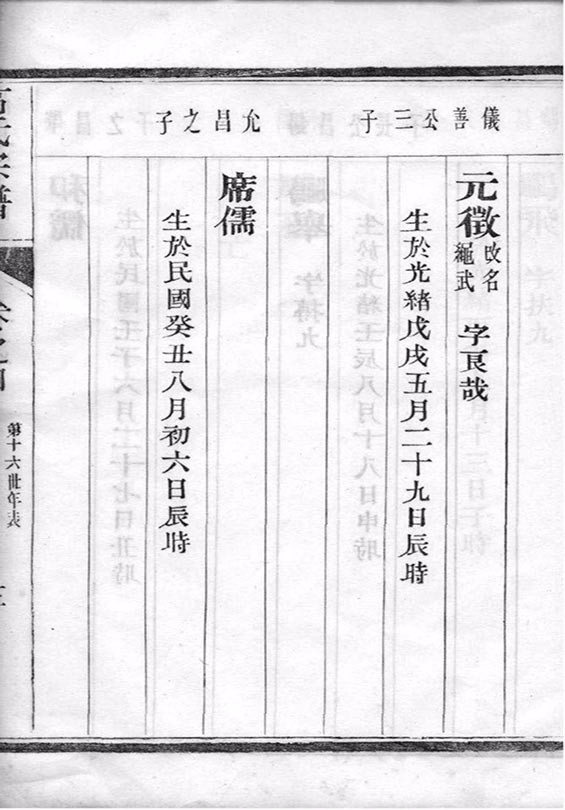 儀善公三子
元徵 改名繩武 字艮哉
生於光緒戊戌五月二十九日辰時
允昌之子
席儒
生於民國癸丑八月初六日辰時
氏宗譜
第十六世年表